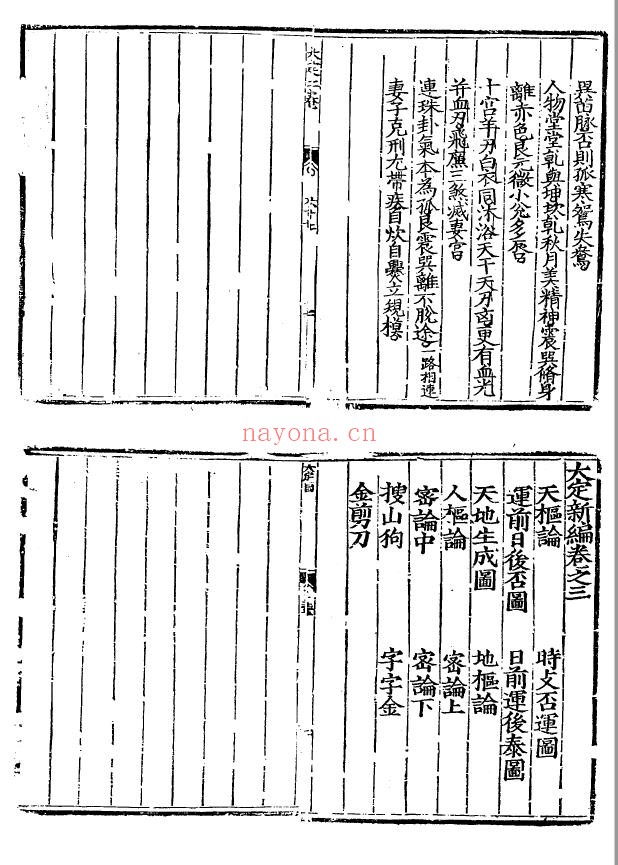 巽苗脉否則孤寒鴛失鴦
人物堂堂乾與坤坎乾秋月美精神震巽脩身
離赤色艮元微小兊多唇
十宫羊刃白衣同沐浴天干天刃卤更有血光
并血刃飛廉三煞减妻宫
連珠卦氣本為孤艮震巽離不脱途一路相連
妻子克刑尢帶疾自炊自㸑立規模
大定二卷
nayona.cn
大定新編卷之三
天樞論 時攴否運圖
運前日後否圖 日前運後泰圖
天地生成圖 地樞論
人樞論 密論上
密論中 密論下
搜山狗 字字金
金剪刀
大定目